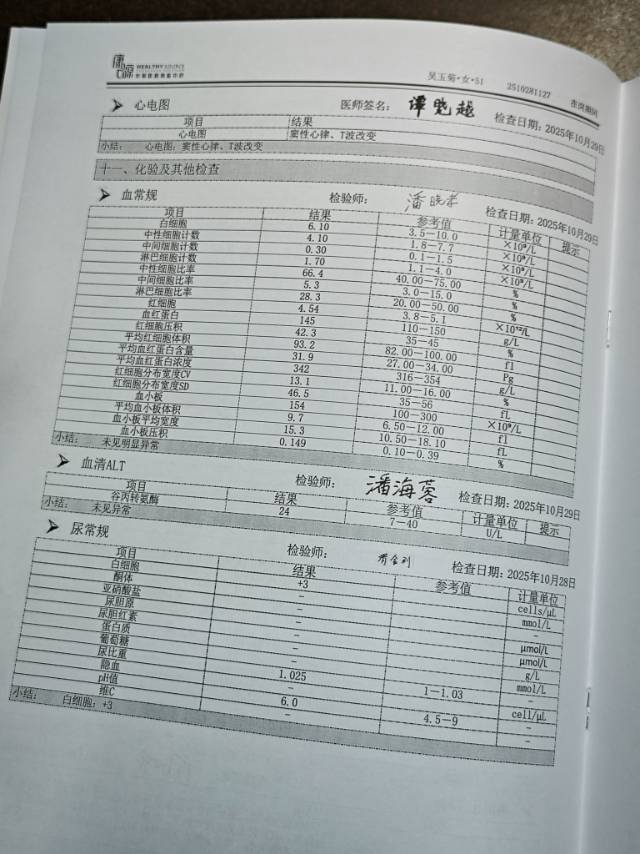 康源 HEALTHY SOURCE
吴玉菊·女·51 2510281127
➤ 心电图 医师签名： 谭晓越 检查日期：2025年10月29日
项目 结果
心电图 窦性心律、T波改变
小结： 心电图：窦性心律、T波改变
十一、化验及其他检查
➤ 血常规 检验师： 检查日期：2025年10月29日
项目 结果 参考值 计量单位 提示
白细胞 6.10 3.5－10.0 ×10⁹/L
中性细胞计数 4.10 1.8－7.7 ×10⁹/L
中间细胞计数 0.30 0.1－1.5 ×10⁹/L
淋巴细胞计数 1.70 1.1－4.0 ×10⁹/L
中性细胞比率 66.4 40.00－75.00 %
中间细胞比率 5.3 3.0－15.0 %
淋巴细胞比率 28.3 20.00－50.00 %
红细胞 4.54 3.8－5.1 ×10¹²/L
血红蛋白 145 110－150 g/L
红细胞压积 42.3 35－45 %
平均红细胞体积 93.2 82.00－100.00 fl
平均血红蛋白含量 31.9 27.00－34.00 Pg
平均血红蛋白浓度 342 316－354 g/L
红细胞分布宽度CV 13.1 11.00－16.00 %
红细胞分布宽度SD 46.5 35－56 fL
血小板 154 100－300 ×10⁹/L
平均血小板体积 9.7 6.50－12.00 fl
血小板平均宽度 15.3 10.50－18.10 fL
血小板压积 0.149 0.10－0.39 %
小结： 未见明显异常
➤ 血清ALT 检验师： 潘海蓉 检查日期：2025年10月29日
项目 结果 参考值 计量单位 提示
谷丙转氨酶 24 7－40 U/L
小结： 未见异常
➤ 尿常规 检验师： 检查日期：2025年10月28日
项目 结果 参考值 计量单位
白细胞 +3 cells/μL
酮体 － mmol/L
亚硝酸盐 － －
尿胆原 － μmol/L
尿胆红素 － μmol/L
蛋白质 － g/L
葡萄糖 － mmol/L
尿比重 1.025 1－1.03
隐血 － cell/μL
pH值 6.0 4.5－9 －
维C － －
小结： 白细胞：+3